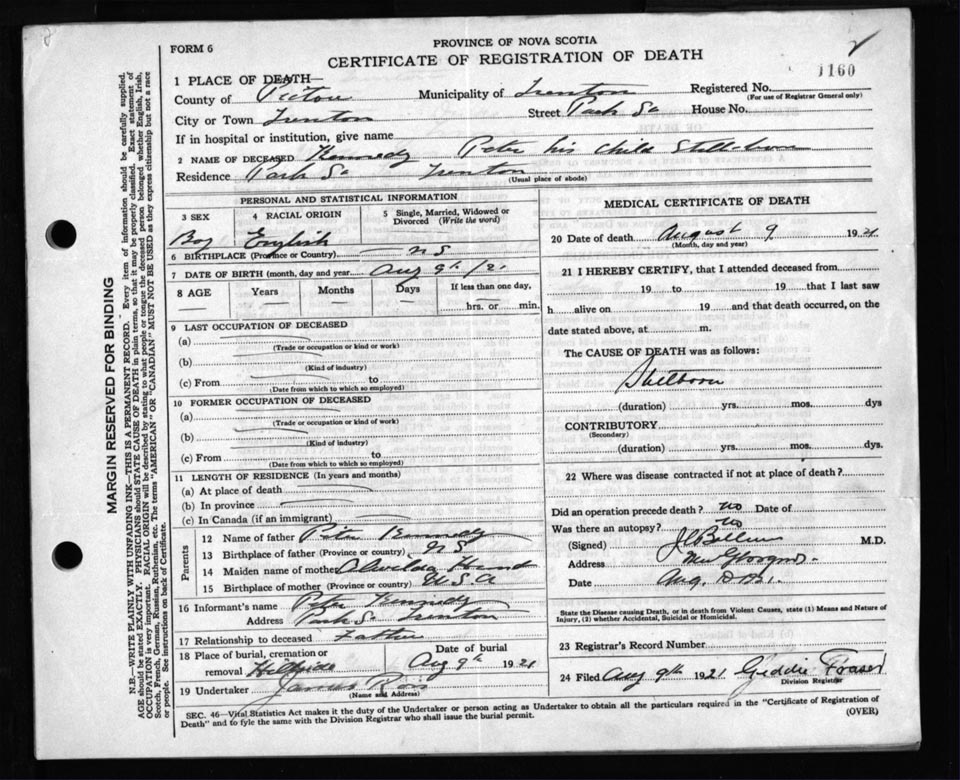 PROVINCE OF NOVA SCOTIA
FORM 6
CERTIFICATE OF REGISTRATION OF DEATH
1160
1 PLACE OF DEATH—
County of Pictou Municipality of Trenton Registered No.
(For use of Registrar General only)
City or Town Trenton Street Park St House No.
If in hospital or institution, give name
2 NAME OF DECEASED Kennedy Peter his child Stillborn
Residence Park St Trenton
(Usual place of abode)
PERSONAL AND STATISTICAL INFORMATION
3 SEX 4 RACIAL ORIGIN 5 Single, Married, Widowed or Divorced (Write the word)
Boy English
6 BIRTHPLACE (Province or Country) N S
7 DATE OF BIRTH (month, day and year) Aug 9th /21
8 AGE Years Months Days If less than one day,
hrs. or min.
9 LAST OCCUPATION OF DECEASED
(a)
(Trade or occupation or kind or work)
(b)
(Kind of industry)
(c) From to
(Date from which to which so employed)
10 FORMER OCCUPATION OF DECEASED
(a)
(Trade or occupation or kind of work)
(b)
(Kind of industry)
(c) From to
(Date from which to which so employed)
11 LENGTH OF RESIDENCE (In years and months)
(a) At place of death
(b) In province
(c) In Canada (if an immigrant)
Parents
12 Name of father Peter Kennedy
13 Birthplace of father (Province or country) N S
14 Maiden name of mother
15 Birthplace of mother (Province or country) U.S.A
16 Informant's name Peter Kennedy
Address Park St Trenton
17 Relationship to deceased Father
18 Place of burial, cremation or removal Hillside Date of burial Aug 9th 1921
19 Undertaker James Ross
(Name and Address)
MEDICAL CERTIFICATE OF DEATH
20 Date of death August 9 1921
(Month, day and year)
21 I HEREBY CERTIFY, that I attended deceased from
19 to 19 that I last saw
h alive on 19 and that death occurred, on the
date stated above, at m.
The CAUSE OF DEATH was as follows:
Stillborn
(duration) yrs. mos. dys
CONTRIBUTORY
(Secondary)
(duration) yrs. mos. dys.
22 Where was disease contracted if not at place of death?
Did an operation precede death? no Date of
Was there an autopsy? no
(Signed) M.D.
Address New Glasgow
Date Aug.
State the Disease causing Death, or in death from Violent Causes, state (1) Means and Nature of
Injury, (2) whether Accidental, Suicidal or Homicidal.
23 Registrar's Record Number
24 Filed Aug 9th 1921 Geddie Fraser
Division Registrar
SEC. 46—Vital Statistics Act makes it the duty of the Undertaker or person acting as Undertaker to obtain all the particulars required in the "Certificate of Registration of
Death" and to fyle the same with the Division Registrar who shall issue the burial permit.
(OVER)
MARGIN RESERVED FOR BINDING
N.B.—WRITE PLAINLY WITH UNFADING INK—THIS IS A PERMANENT RECORD. Every item of information should be carefully supplied.
AGE should be stated EXACTLY. PHYSICIANS should STATE CAUSE OF DEATH in plain terms, so that it may be properly classified. Exact statement of
OCCUPATION is very important. RACIAL ORIGIN will be described by stating to what people or tongue the deceased person belonged whether English, Irish,
Scotch, French, German, Russian, Ruthenian, etc. The terms "AMERICAN" OR "CANADIAN" MUST NOT BE USED as they express citizenship but not a race
or people. See instructions on back of Certificate.